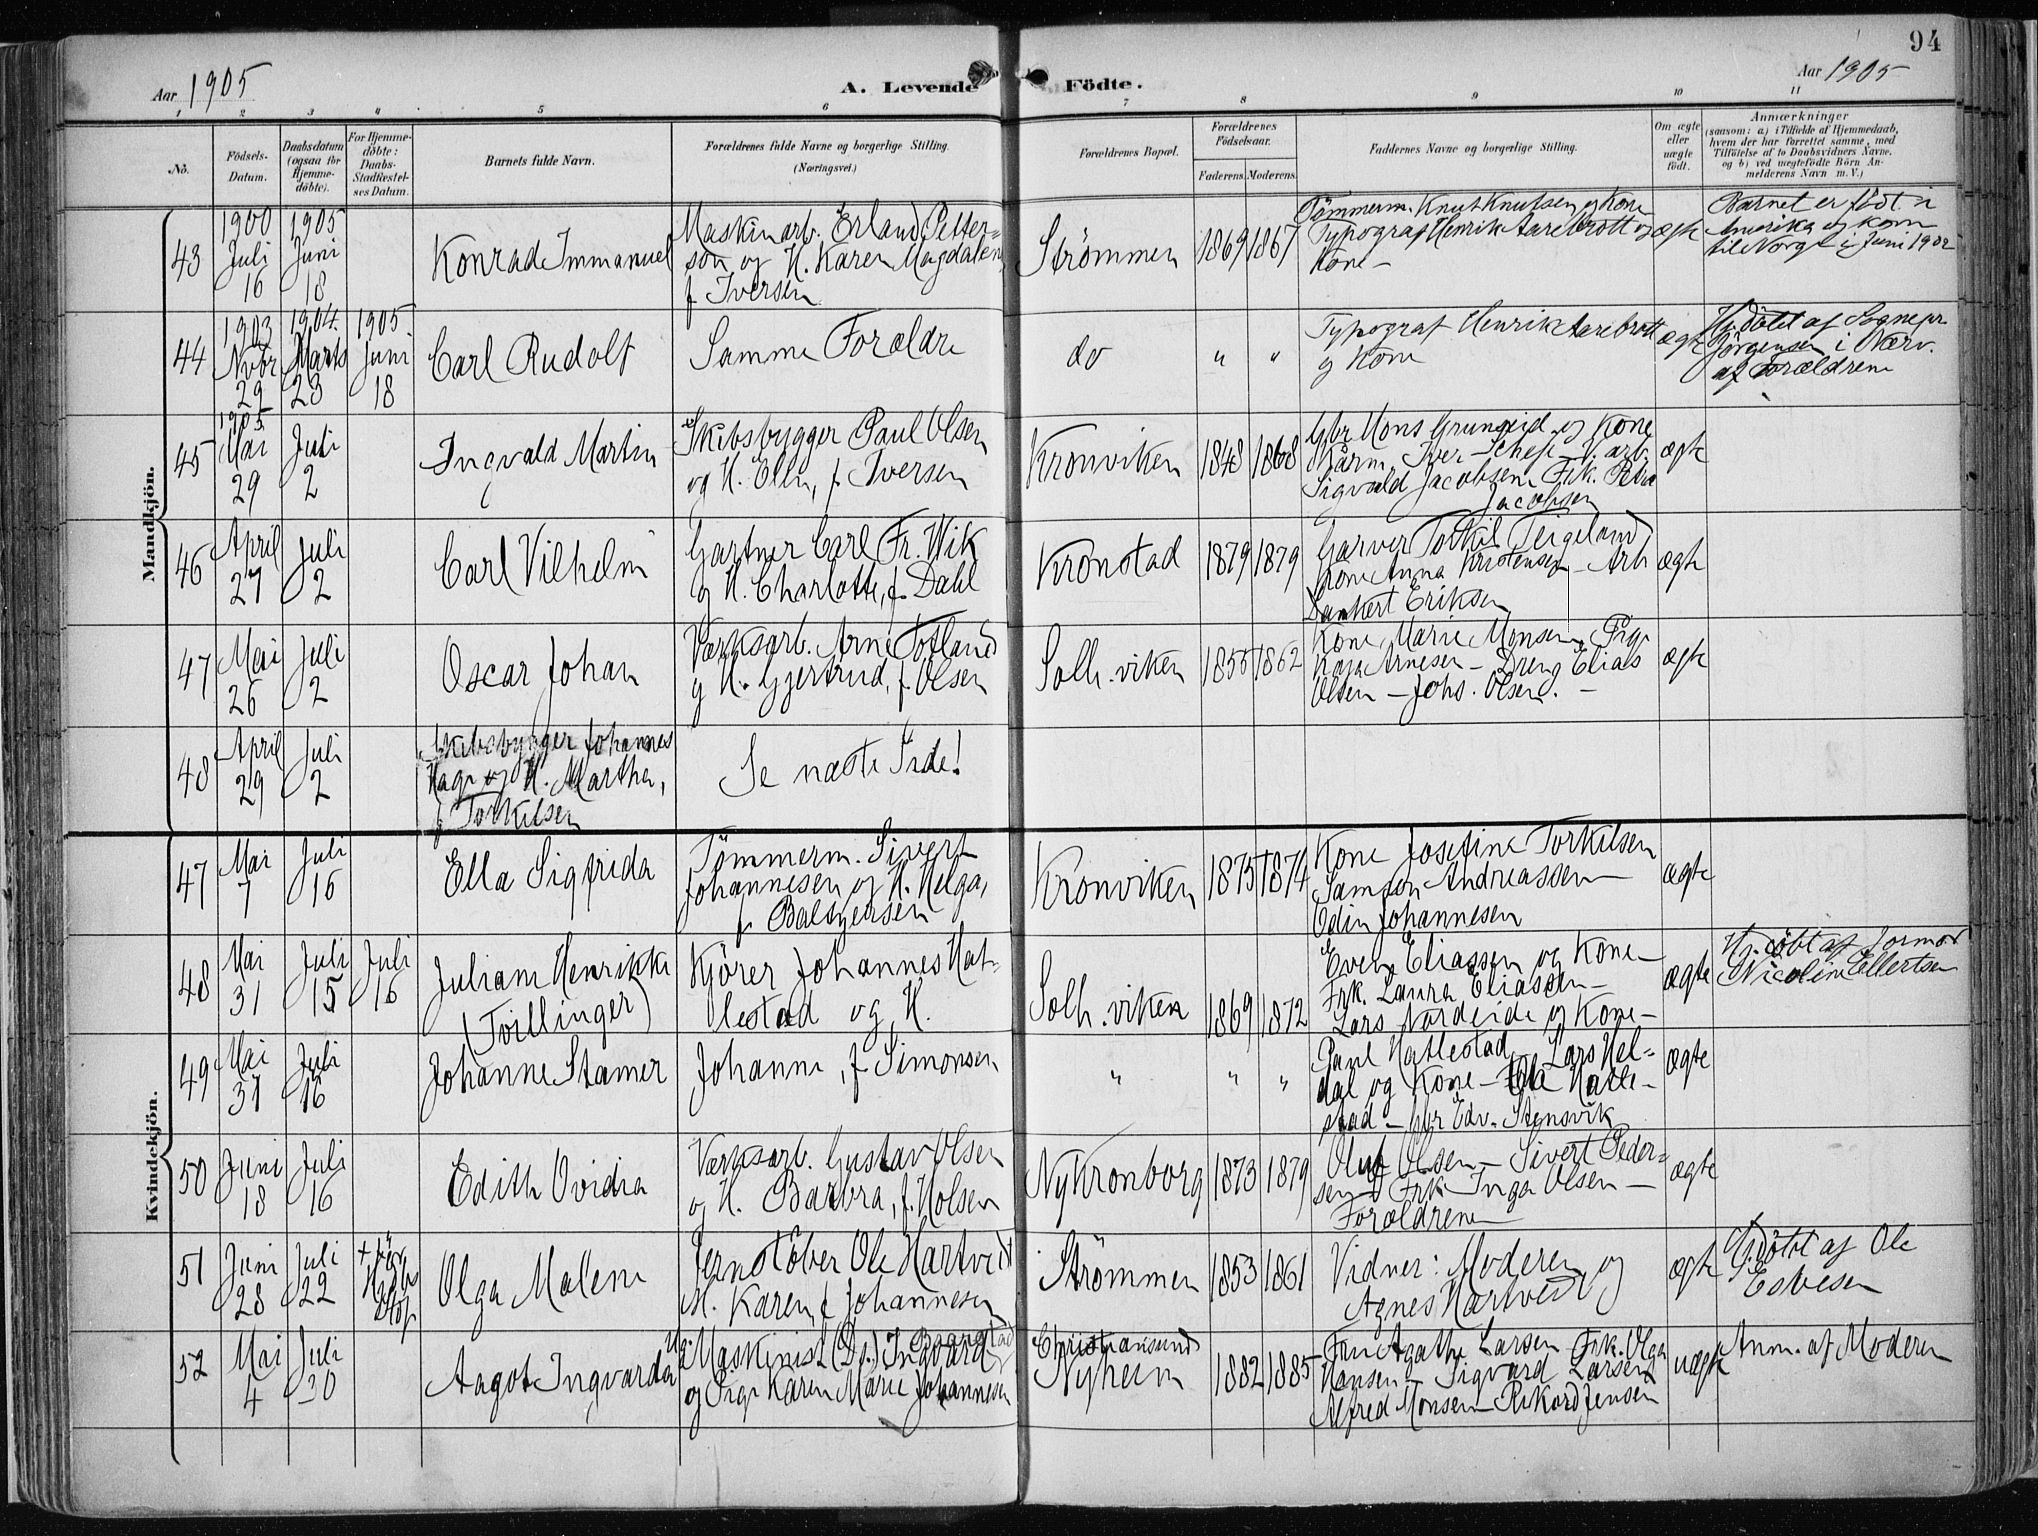 94
Aar 1905
A. Levende Födte.
Aar 1905
1 2 3 4 5 6 7 8 9 10 11
No.
Födsels-Datum.
Daabsdatum (ogsaa for Hjemmedöbte).
For Hjemmedöbte: Daabs-Stadfæstelses Datum.
Barnets fulde Navn.
Forældrenes fulde Navne og borgerlige Stilling. (Næringsvei.)
Forældrenes Bopæl.
Forældrenes Födselsaar.
Faderens. Moderens.
Faddernes Navne og borgerlige Stilling.
Om ægte eller uægte født.
Anmærkninger
(saasom: a.) i Tilfælde af Hjemmedaab, hvem der har forrettet samme, med Tilföielse af to Daabsvidners Navne. og b) ved uægtefödte Börn Anmelderens Navn m. V.)
Mandkjön.
43
1900 Juli 16
1905 Juni 18
Konrad Immanuel
Maskinarb. Erland Petter=
son og H. Karen Magdalena
f Iversen
Strømmen
1869 1867
Tömmerm. Knut Knutsen og Kone
Typograf Henrik Aarebrott og
Kone -
ægte
Barnet er født i
Amerika og kom
til Norge i Juni 1902
44
1903 Nvbr 29
1904 Marts 23
1905 Juni 18
Carl Rudolf
Samme Forældre
do
" "
Typograf Henrik Aarebrott
og Kone
ægte
Hj.døbt af Sognepr.
Jørgensen i Nærv.
af Forældrene
45
1905 Mai 29
Juli 2
Ingvald Martin
Skibsbygger Paul Olsen
og H. Ellen, f. Iversen
Kronviken
1848 1868
Gbr Mons Grungeid og Kone
Iver
Sigvald Jacobsen Frk. Petra
Jacobsen
ægte
46
April 27
Juli 2
Carl Vilhelm
Gartner Carl Fr. Wik
og H. Charlotte, f. Dahl
Kronstad
1879 1879
Garver Torkil Teigeland
Kone Anna Kristensen - Arb
Dankert Eriksen
ægte
47
Mai 26
Juli 2
Oscar Johan
Værksarb. Arne Totland
og H. Gjertrud, f. Olsen
Solh.viken
1855 1862
Kone Marie Monsen, Pige
Kaja Arnesen - Dreng Elias
Olsen - Johs. Olsen. -
ægte
48
April 29
Juli 2
Skibsbygger Johannes
Hage og H. Martha,
f Torkilsen
Se næste Side!
Kvindekjön.
47
Mai 7
Juli 16
Ella Sigfrida
Tömmerm. Sivert
Johannesen og H. Helga,
f. Balsjersen
Kronviken
1875 1874
Kone Josefine Torkilsen
Samson Andreassen
Odin Johannesen
ægte
48
Mai 31
Juli 15
Juli 16
Juliane Henrikke
(Tvillinger)
Kjörer Johannes Hat-
lestad og H.
Solh.viken
1869 1872
Even Eliassen og Kone -
Frk. Laura Eliasen -
Lars Nordeide og Kone -
ægte
Hj.døbt af Jormor
Nicoline Ellertsen
49
Mai 31
Juli 16
Johanne Stamer
Johanne, f Simonsen
" " "
Paul Hatlestad, Lars Hel=
dal og Kone - Hatle-
stad - Gbr Edv. Stensvik
ægte
50
Juni 18
Juli 16
Edith Ovidia
Værksarb. Gustav Olsen
og H. Barbra, f. Holsen
Ny Kronborg
1873 1879
Oluf Olsen - Sivert Peder=
sen Frk Inga Olsen -
Forældrene
ægte
51
Juni 28
Juli 22
+ før
Olga Malene
Jernstöber Ole Hartvedt
H. Karen f Johannesen
Strømmen
1853 1861
Vidner: Moderen og
Agnes Hartvedt
ægte
Hj.døbt af Ole
Espesen
52
Mai 4
Juli 30
Aagot Ingvarda
Ug. Maskinist (Ds.) Ingvard
og Pige Karen Marie Johannesen
Christiansund
Nyheim
1882 1885
Fru Agathe Larsen Frk. Olga
Hansen - Sigvard Larsen
Alfred Monsen - Rikard Jensen
uægte
Anm. af Moderen